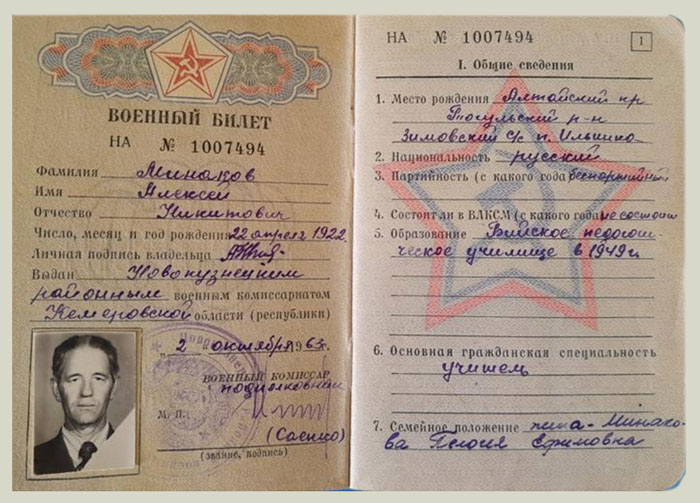 ВОЕННЫЙ БИЛЕТ
НА № 1007494
Фамилия Минаков
Имя Алексей
Отчество Никитович
Число, месяц и год рождения 22 апреля 1922
Личная подпись владельца
Выдан Новокузнецким
районным военным комиссариатом
Кемеровской области (республики)
2 октября 1963 г.
ВОЕННЫЙ КОМИССАР
подполковник
М. П.
(Саенко)
(звание, подпись)
НА № 1007494
1
I. Общие сведения
1. Место рождения Алтайский кр
Тогульский р-н
Зимовский с/с п. Ильинка
2. Национальность русский
3. Партийность (с какого года беспартийный
4. Состоял ли в ВЛКСМ (с какого года не состоял
5. Образование Бийское педагоги-
ческое училище в 1949 г
6. Основная гражданская специальность
учитель
7. Семейное положение жена - Минако-
ва Ефимовна